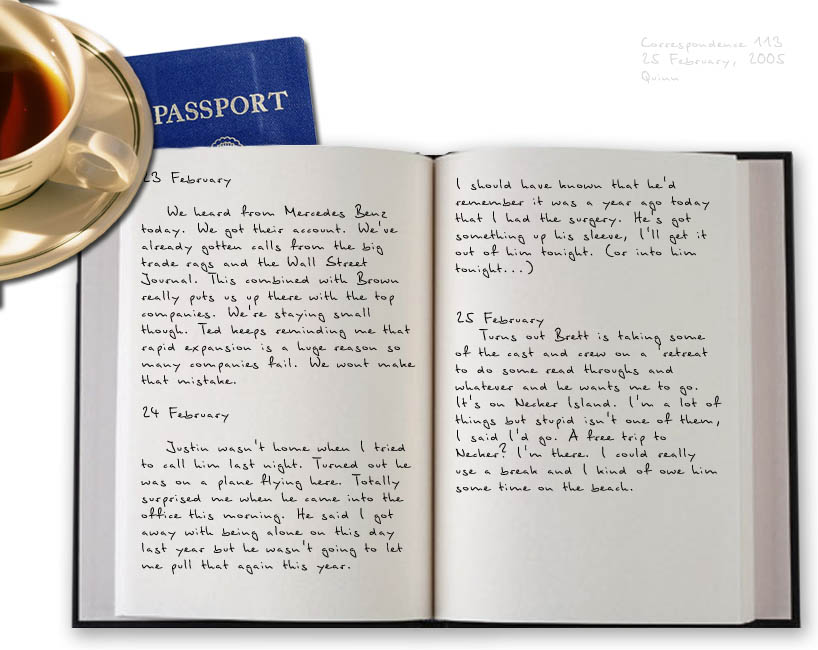 Correspondence 113
25 February, 2005
Quinn
PASSPORT
23 February
We heard from Mercedes Benz
today. We got their account. We've
already gotten calls from the big
trade rags and the Wall Street
Journal. This combined with Brown
really puts us up there with the top
companies. We're staying small
though. Ted keeps reminding me that
rapid expansion is a huge reason so
many companies fail. We wont make
that mistake.
24 February
Justin wasn't home when I tried
to call him last night. Turned out he
was on a plane flying here. Totally
surprised me when he came into the
office this morning. He said I got
away with being alone on this day
last year but he wasn't going to let
me pull that again this year.
I should have known that he'd
remember it was a year ago today
that I had the surgery. He's got
something up his sleeve, I'll get it
out of him tonight. (or into him
tonight...)
25 February
Turns out Brett is taking some
of the cast and crew on a 'retreat'
to do some read throughs and
whatever and he wants me to go.
It's on Necker Island. I'm a lot of
things but stupid isn't one of them,
I said I'd go. A free trip to
Necker? I'm there. I could really
use a break and I kind of owe him
some time on the beach.